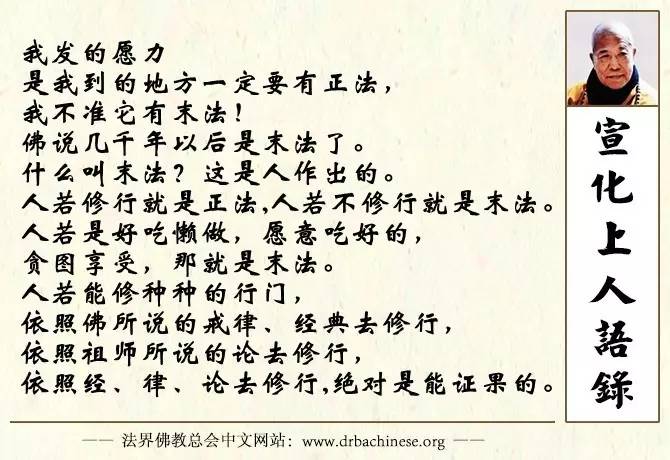 我发的愿力
是我到的地方一定要有正法，
我不准它有末法！
佛说几千年以后是末法了。
什么叫末法？这是人作出的。
人若修行就是正法,人若不修行就是末法。
人若是好吃懒做，愿意吃好的，
贪图享受，那就是末法。
人若能修种种的行门，
依照佛所说的戒律、经典去修行，
依照祖师所说的论去修行，
依照经、律、论去修行,绝对是能证果的。
宣化上人語錄
—— 法界佛教总会中文网站：www.drbachinese.org ——